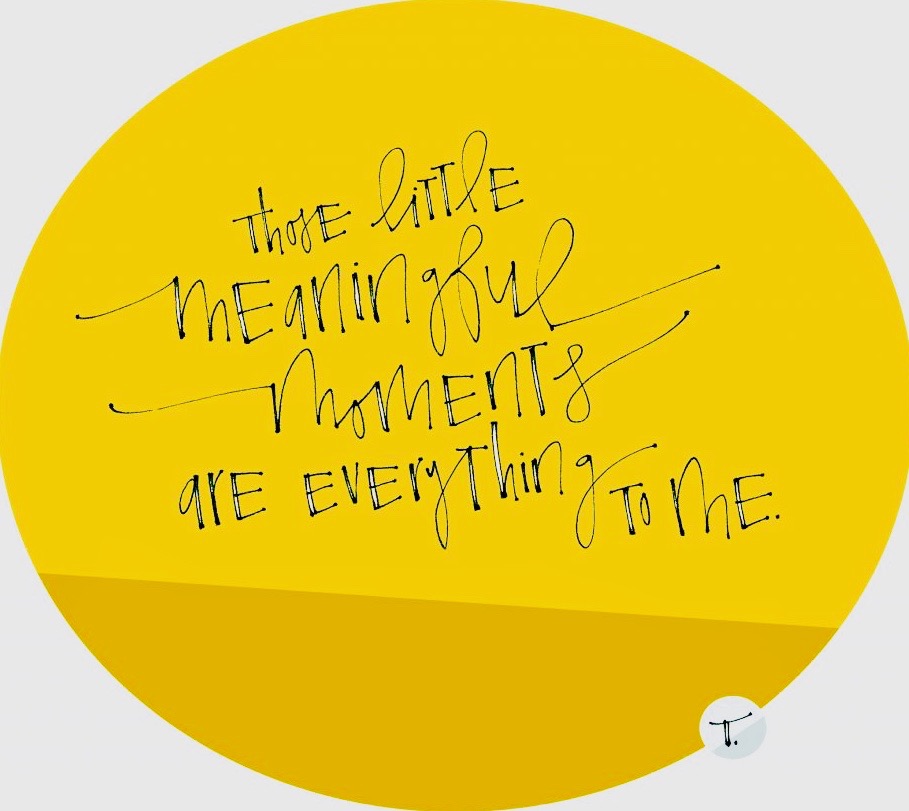 those little
meaningful
moments
are everything to me.
T.